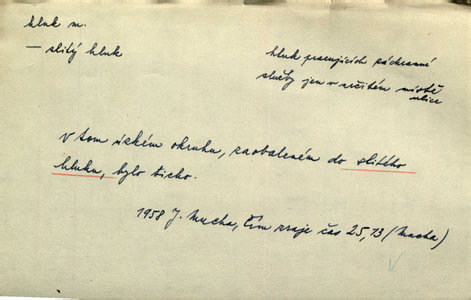 hluk m.
— slitý hluk
hluk pracujících záchranné
služby jen v určitém místě
ulice
v tom úzkém okruhu, zaobaleném do slitého
hluku, bylo ticho.
1958 J. Mucha, Čím zraje čas 25,13 (Mucha)